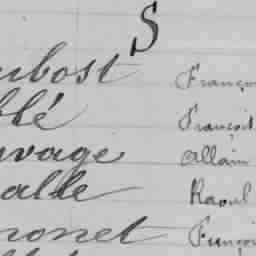 S
ubost François
blé François
uvage Allain
alle Raoul
monet François